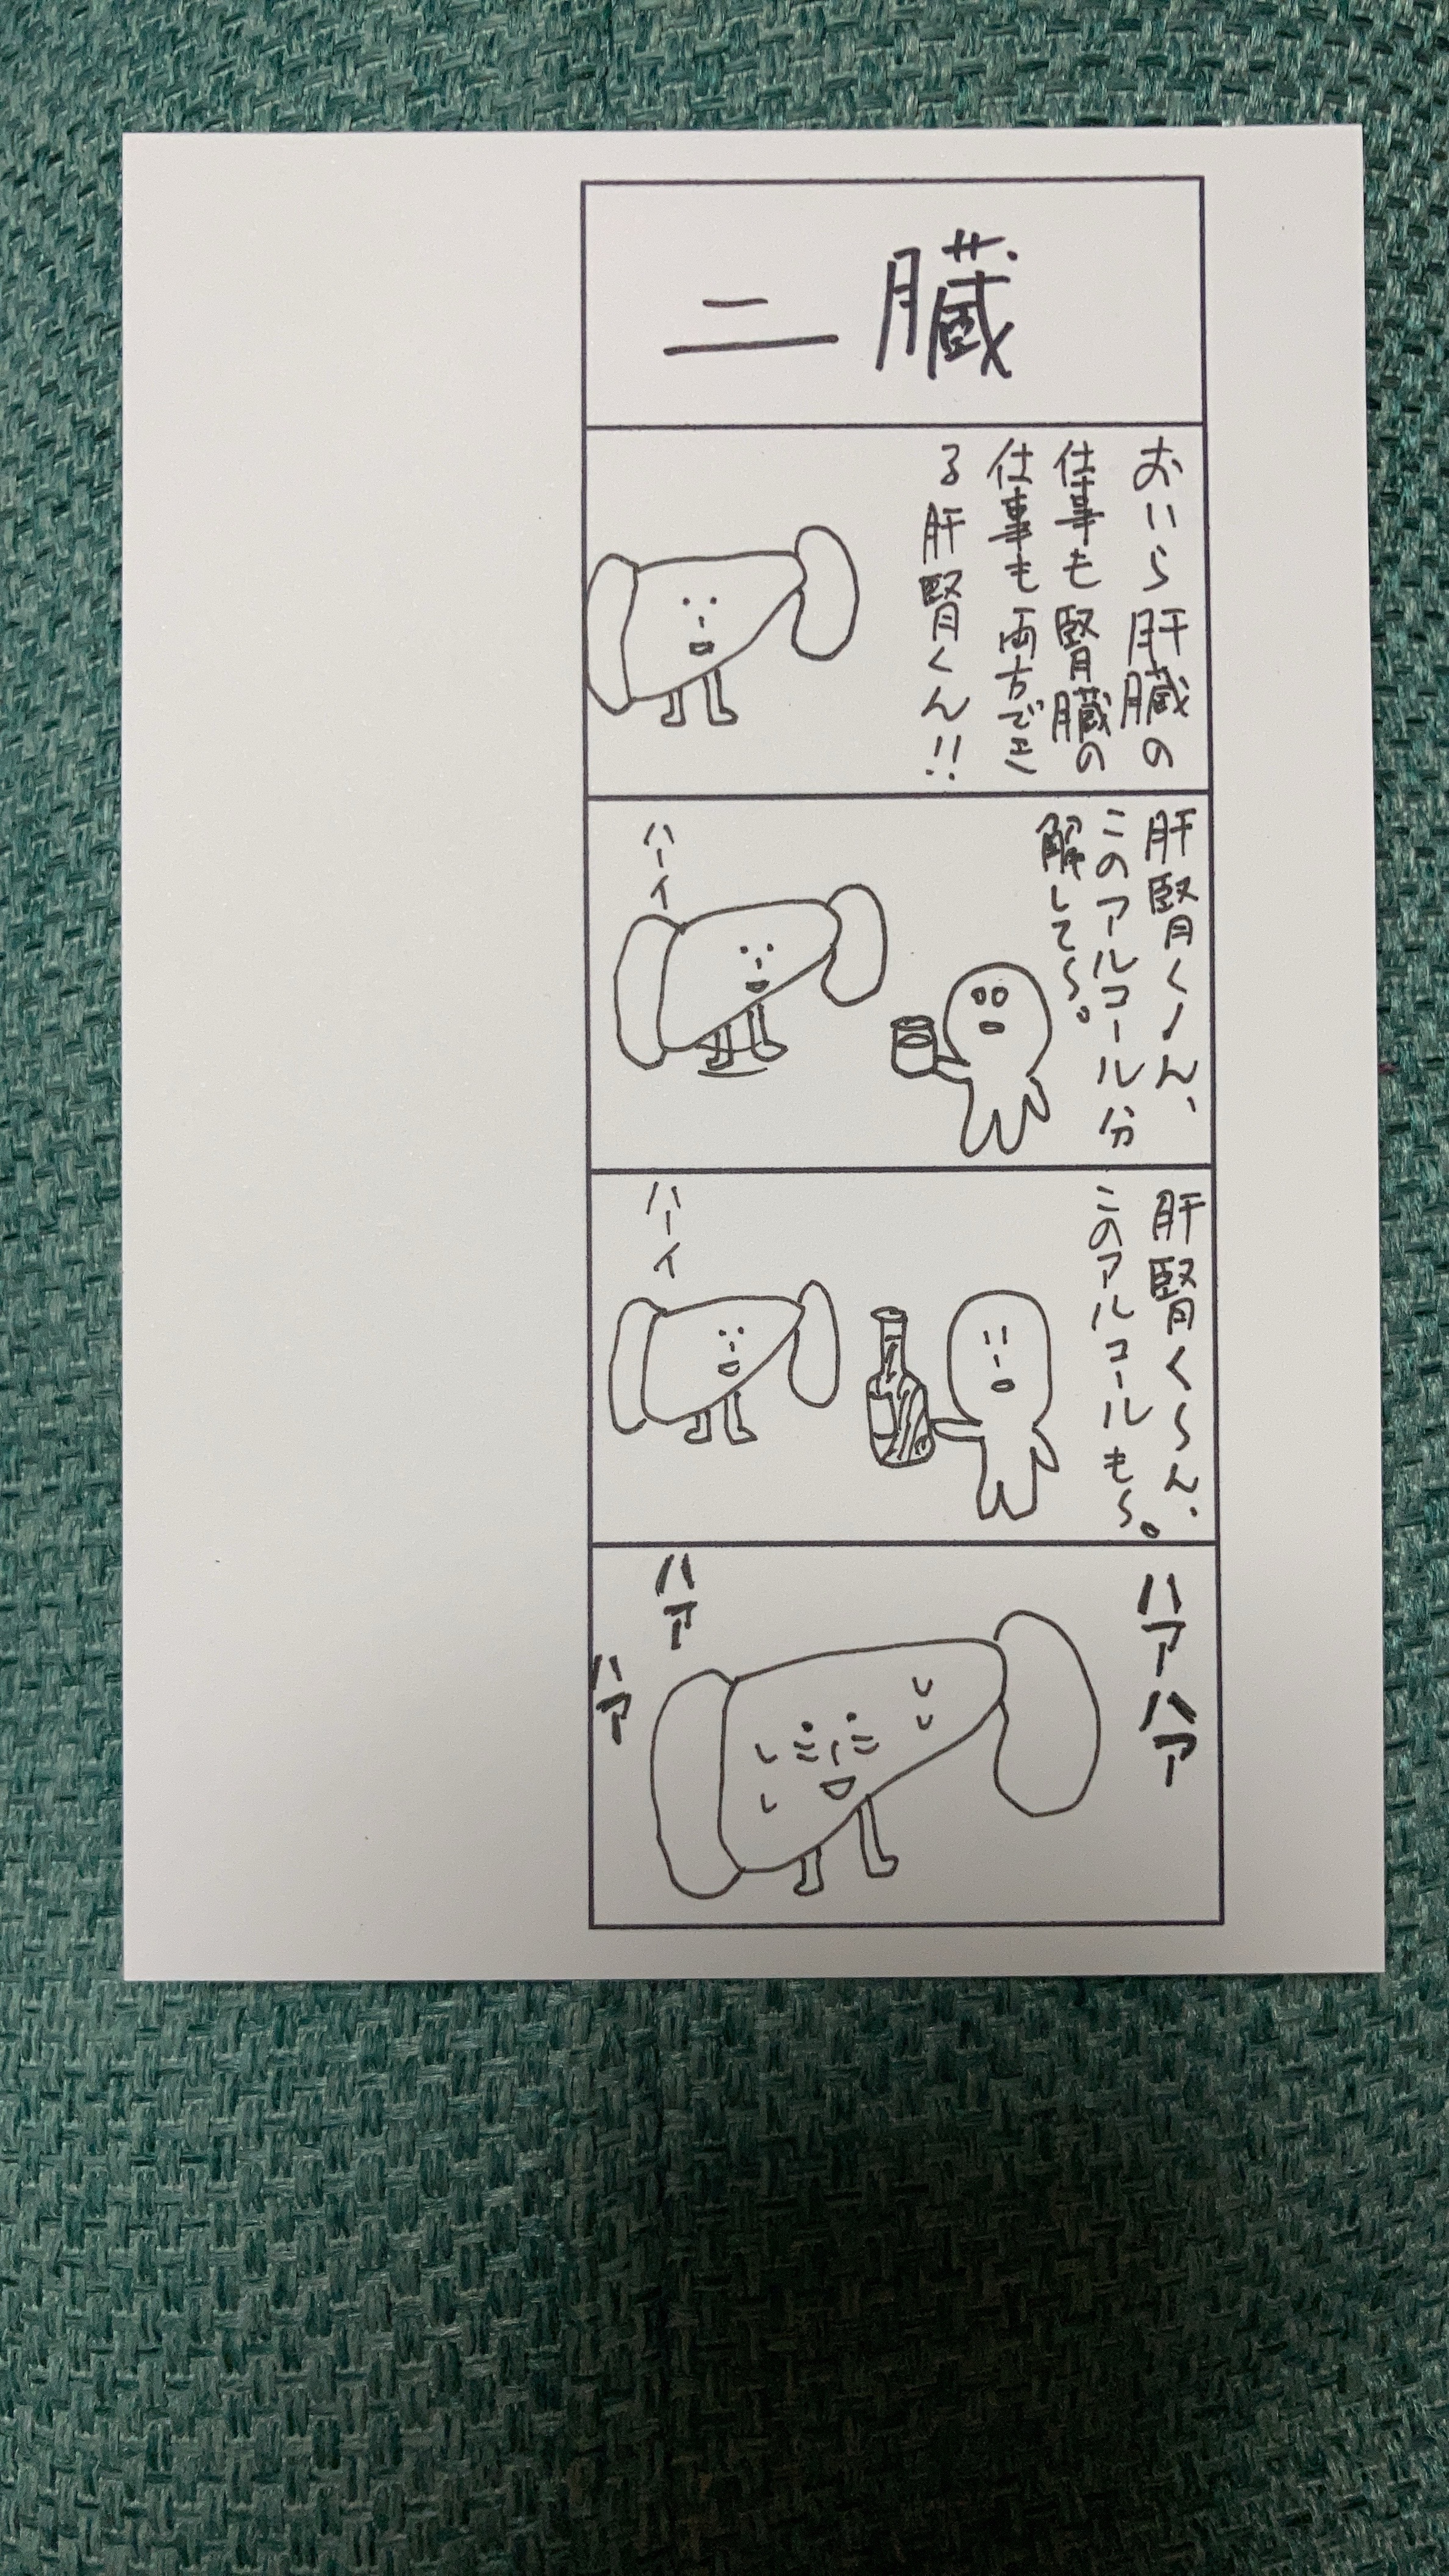 二臓
おいら肝臓の
仕事も腎臓の
仕事も両方でき
る肝腎くん!!
肝腎く〜ん、
このアルコール分
解して〜。
ハーイ
肝腎く〜ん、
このアルコールも〜。
ハーイ
ハアハア
ハア
ハア